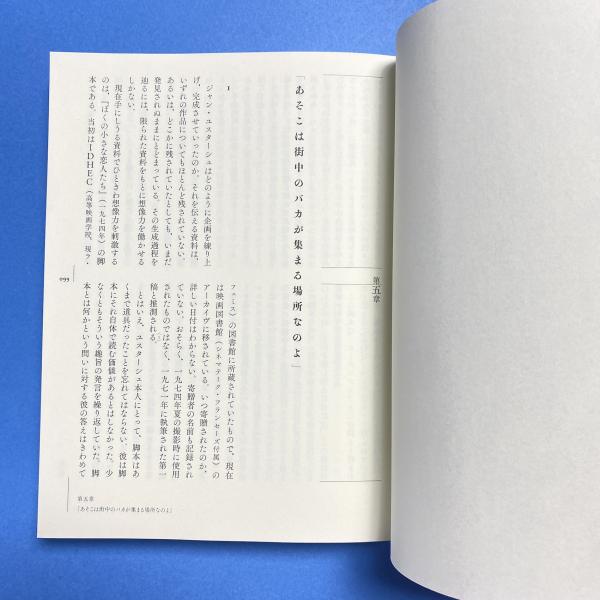 第五章
「あそこは街中のバカが集まる場所なのよ」
1
ジャン・ユスターシュはどのように企画を練り上
げ、完成させていったのか。それを伝える資料は、
いずれの作品についてもほとんど残されていない。
あるいは、どこかに残されていたとしても、いまだ
発見されぬままにとどまっている。その生成過程を
辿るには、限られた資料をもとに想像力を働かせる
しかない。
現在手にしうる資料でひときわ想像力を刺激する
のは、『ぼくの小さな恋人たち』（一九七四年）の脚
本である。当初はIDHEC（高等映画学院、現フ・
フェミス）の図書館に所蔵されていたもので、現在
は映画図書館（シネマテーク・フランセーズ付属）の
アーカイヴに移されている。いつ寄贈されたのか、
詳しい日付はわからない。寄贈者の名前も記録され
ていない。おそらく、一九七四年夏の撮影時に使用
されたものではなく、一九七一年に執筆された第一
稿と推測される。
とはいえ、ユスターシュ本人にとって、脚本はあ
くまで道具だったことを忘れてはならない。彼は脚
本にそれ自体で読む価値があるとはしなかった。少
なくともそういう趣旨の発言を繰り返していた。脚
本とは何かという問いに対する彼の答えはきわめて
099
第五章
「あそこは街中のバカが集まる場所なのよ」